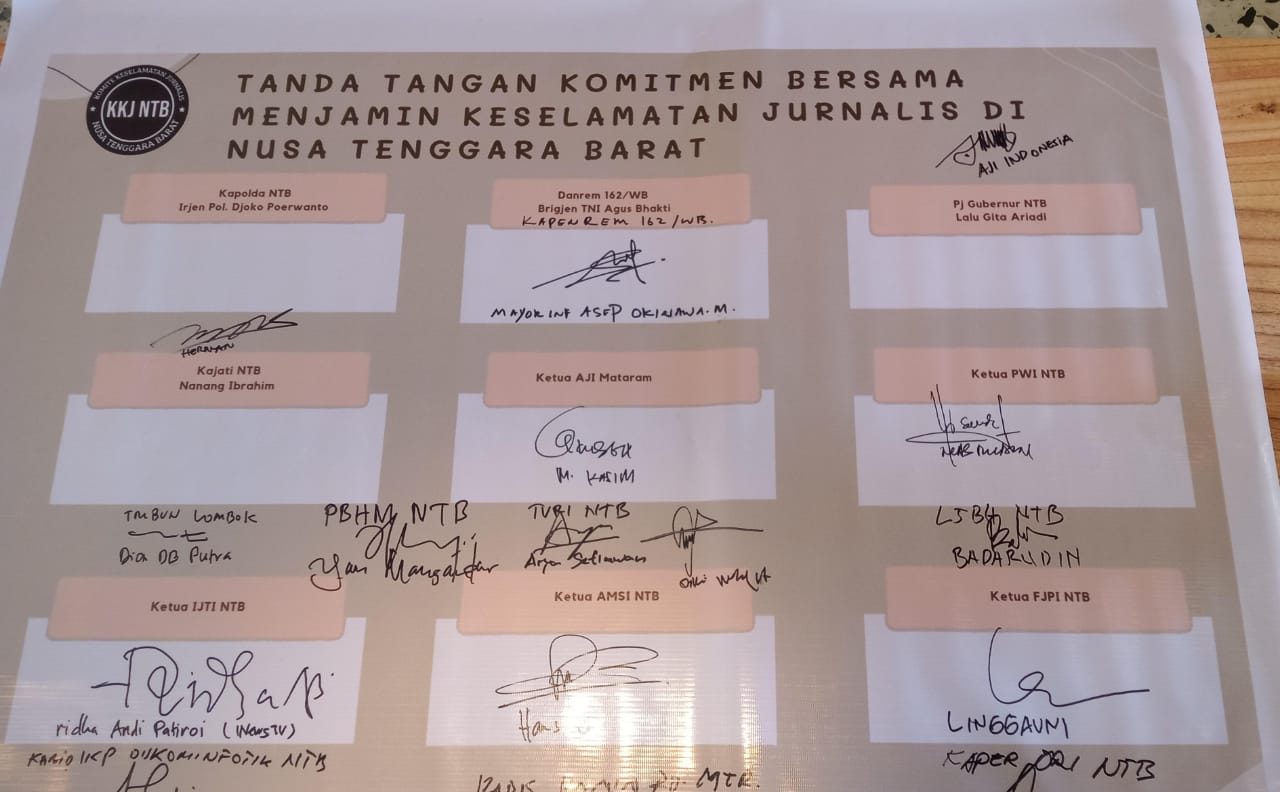 KOMITE KESELAMATAN JURNALIS
KKJ NTB
NUSA TENGGARA BARAT
TANDA TANGAN KOMITMEN BERSAMA
MENJAMIN KESELAMATAN JURNALIS DI
NUSA TENGGARA BARAT
AJI INDONESIA
Kapolda NTB
Irjen Pol. Djoko Poerwanto
Danrem 162/WB
Brigjen TNI Agus Bhakti
KAPENREM 162/WB.
MAYOR INF ASEP OKINAWA.M.
Pj Gubernur NTB
Lalu Gita Ariadi
HERMAN
Kajati NTB
Nanang Ibrahim
Ketua AJI Mataram
M. KASIM
Ketua PWI NTB
LOMBOK
Dion DB Putra
PBHM NTB
Yan Mangandar
NTB
Setiawan
NTB
BADARUDIN
Ketua IJTI NTB
ridha Andi Patiroi (iNewsTV)
Ketua AMSI NTB
Hans
Ketua FJPI NTB
LINGGAUNI
IKP DISKOMINFOTIK NTB
MTR.
KAPER NTB